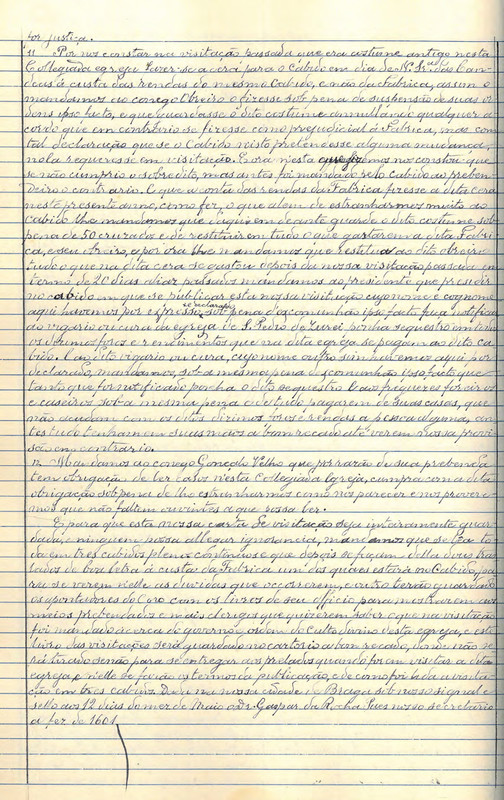 por justiça.
11 Por nos constar na visitação passada que era custume antigo nesta
Collegiada egreja fazer-se a cera para o Cabido em dia de N. Sr.ª das Can-
deas á custa das rendas do mesmo Cabido, e não da Fabrica, assim o
mandamos ao conego Obreiro o fizesse sob pena de suspensão de suas or-
dens ipso facto, e que guardasse o dito custume annullando qualquer a-
cordo que em contrário se fizesse como prejudicial á Fabrica, mas com
tal declaração que se o Cabido nisto pretendesse alguma mudança,
nola requeresse em visitação. E ora nesta que fizemos nos constou que
se não cumprio o sobredito, mas antes foi mandado pelo Cabido ao preben-
deiro o contrario. E que á conta das rendas da Fabrica fizesse a dita cera
neste presente anno, como fez, o que alem de estranharmos muito ao
Cabido lhe mandamos que d'aqui em deante guarde o dito costume sob
pena de 50 cruzados e de restituirem tudo o que gastarem á dita Fabri-
ca, e seu obreiro, e por ora lhe mandamos que restitua ao dito obreiro
tudo o que na dita cera se gastou depois da nossa visitação passada em
termo de 20 dias aliaz passados mandamos ao presidente que presidir
no cabido em que se publicar esta nossa visitação cujo nome e cognome
aqui havemos por expresso e declarado sob pena d'excomunhão ipso facto faça notificar
ao vigario ou cura da egreja de S. Pedro de ponha sequestro em todos
os dizimos foros e rendimentos que na dita egreja se pagam ao dito Ca-
bido. E ao dito vigario ou cura, cujo nome outro sim havemos aqui por
declarado, mandamos, sob a mesma pena d'excomunhão ipso facto que
tanto que for notificado ponha o dito sequestro e aos freguezes foreiros
e caseiros sob a mesma pena e de tudo pagarem de suas casas, que
não acudam com os ditos dizimos foros e rendas a pessoa alguma, an-
tes tudo tenham em suas mãos a bom recado até verem nossa provi-
são em contrario.
12 Mandamos ao conego Gonçalo Velho que por razão de sua prebenda
tem obrigação de ler casos n'esta Collegiada Egreja, cumpra com a dita
obrigação sob pena de lho estranharmos como nos parecer e nos provere-
mos que não faltem ouvintes a que nossa ler.
E para que esta nossa carta de visitação seja inteiramente guar-
dada, e ninguem possa allegar ignorancia, mandamos que se lea to-
da em tres cabidos plenos continuos e que depois se façam della dous tras-
lados de boa letra á custa da Fabrica um dos quaes estará no Cabido, pa-
ra se verem nelle as duvidas que occorrerem, e outro terão guardado
os apontadores do Coro com os livros de seu officio para mostrarem aos
meios prebendados e mais clerigos que quizerem saber o que na visitação
foi mandado acerca do governo e ordem do Culto divino desta egreja, e este
livro das visitações será guardado no cartorio a bom recado, donde não se-
rá tirado senão para se entregar aos prelados quando forem visitar a dita
egreja e nelle se farão os termos da publicação, e de como foi lida a visita-
ção em tres cabidos. Dada na nossa cidade de Braga sob nosso signal e
sello aos 12 dias do mez de Maio o Dr. Gaspar da Rocha Paes nosso secretario
a fez de 1601